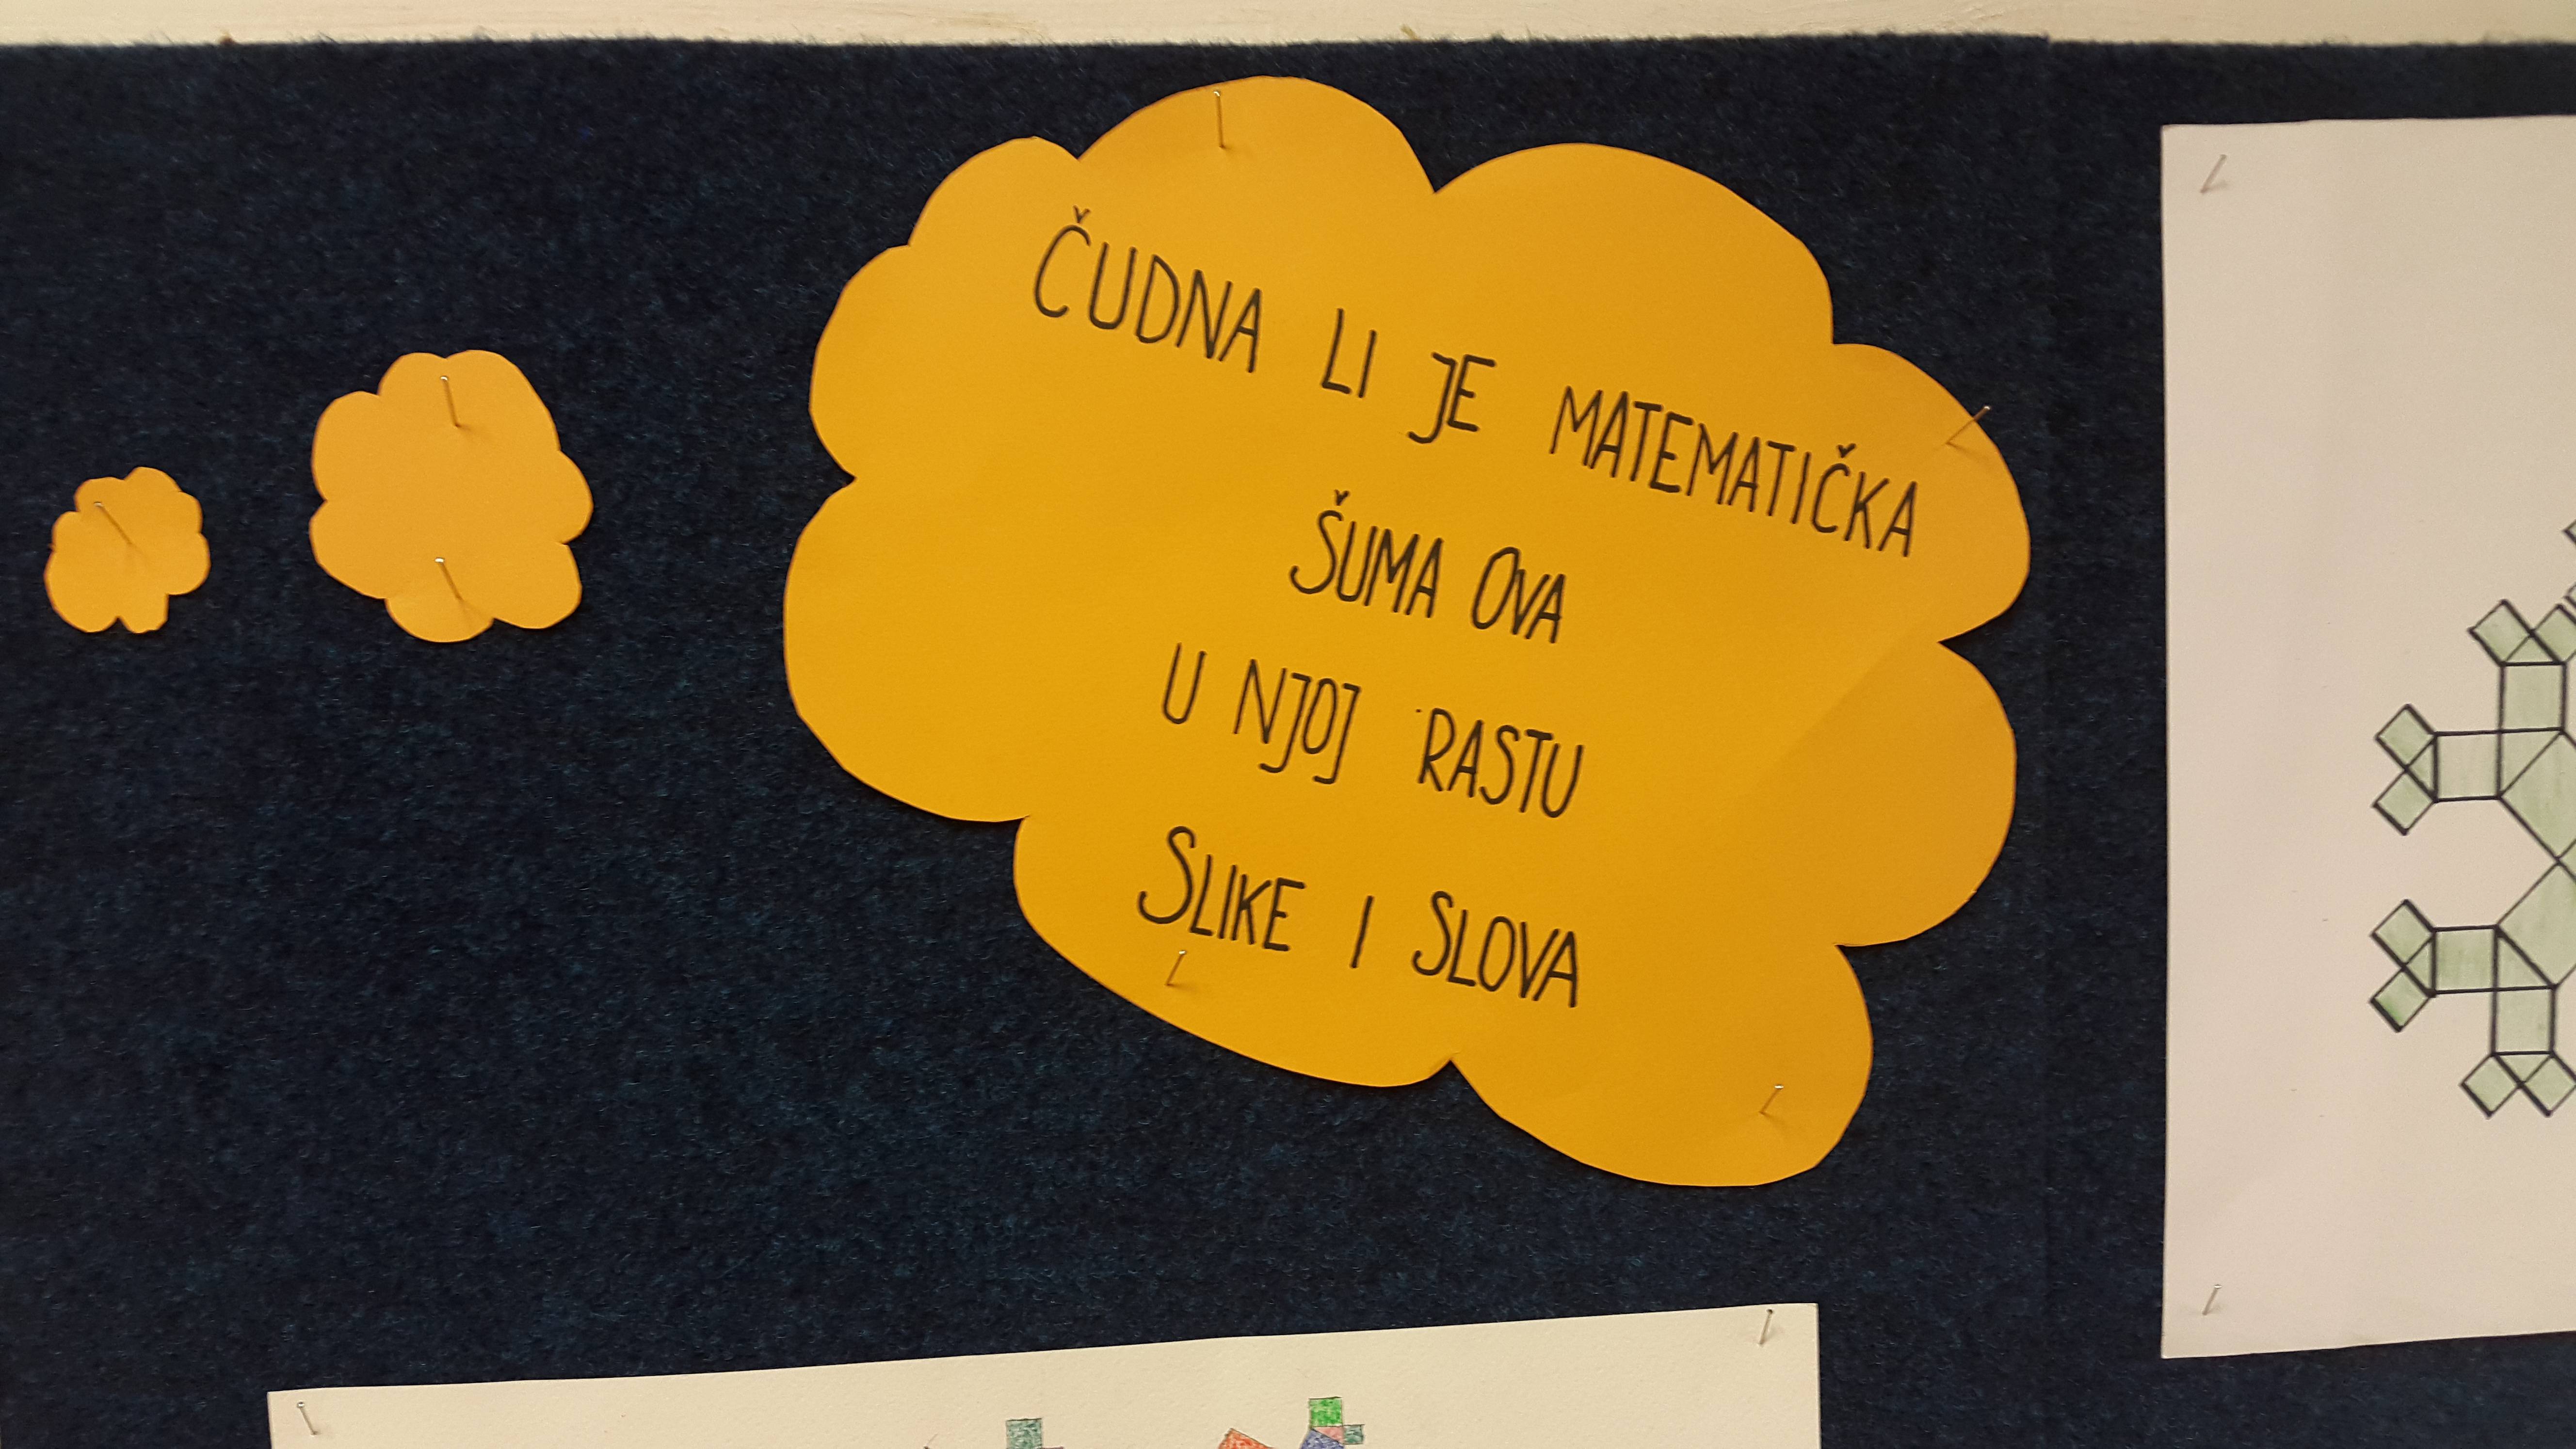 ČUDNA LI JE MATEMATIČKA
ŠUMA OVA
U NJOJ RASTU
SLIKE I SLOVA